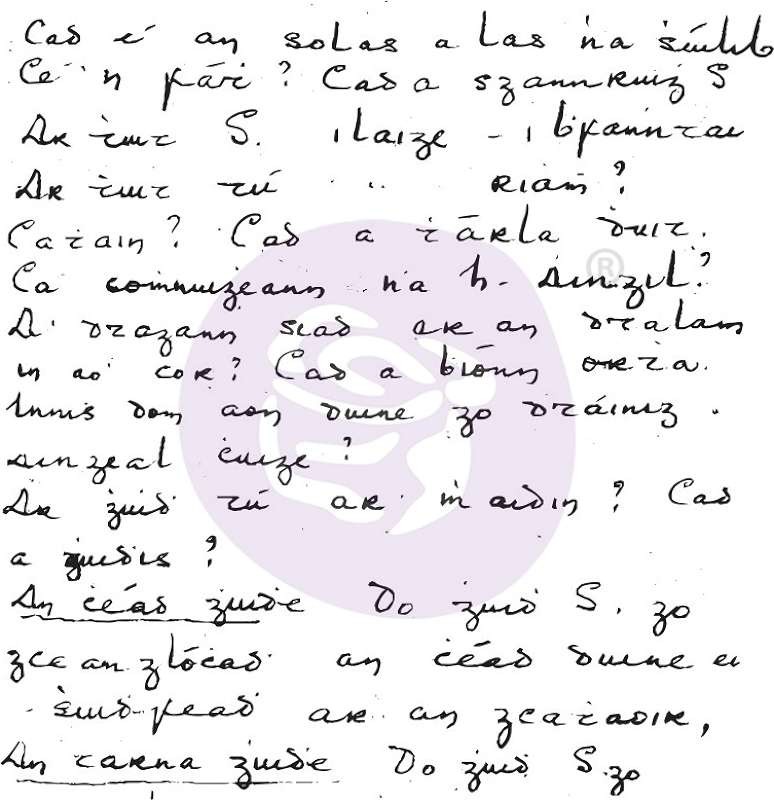 Cad é an solas a las 'na ṡúilib
Cé'n ḟáṫ? Cad a sgannruiġ S
Ar ṫuit S. i laige - i bfanntai
Ar ṫuit tú " riaṁ?
Caṫain? Cad a ṫárla duit.
Cá comnuiġeann na h-Aingil?
A' dtagann siad ar an dtalaṁ
in aō cor? Cad a bíonn orṫa.
Innis dom aon duine go dtáiniġ
aingeal ċuige?
Ar ġuid tú ar maidin? Cad
a ġuidis?
An ċéad ġuide Do ġuid S. go
gceanglócad an ċéad duine ei
ṡuidfead ar an gcaṫaoir,
An tarna ġuide Do ġuid S. go